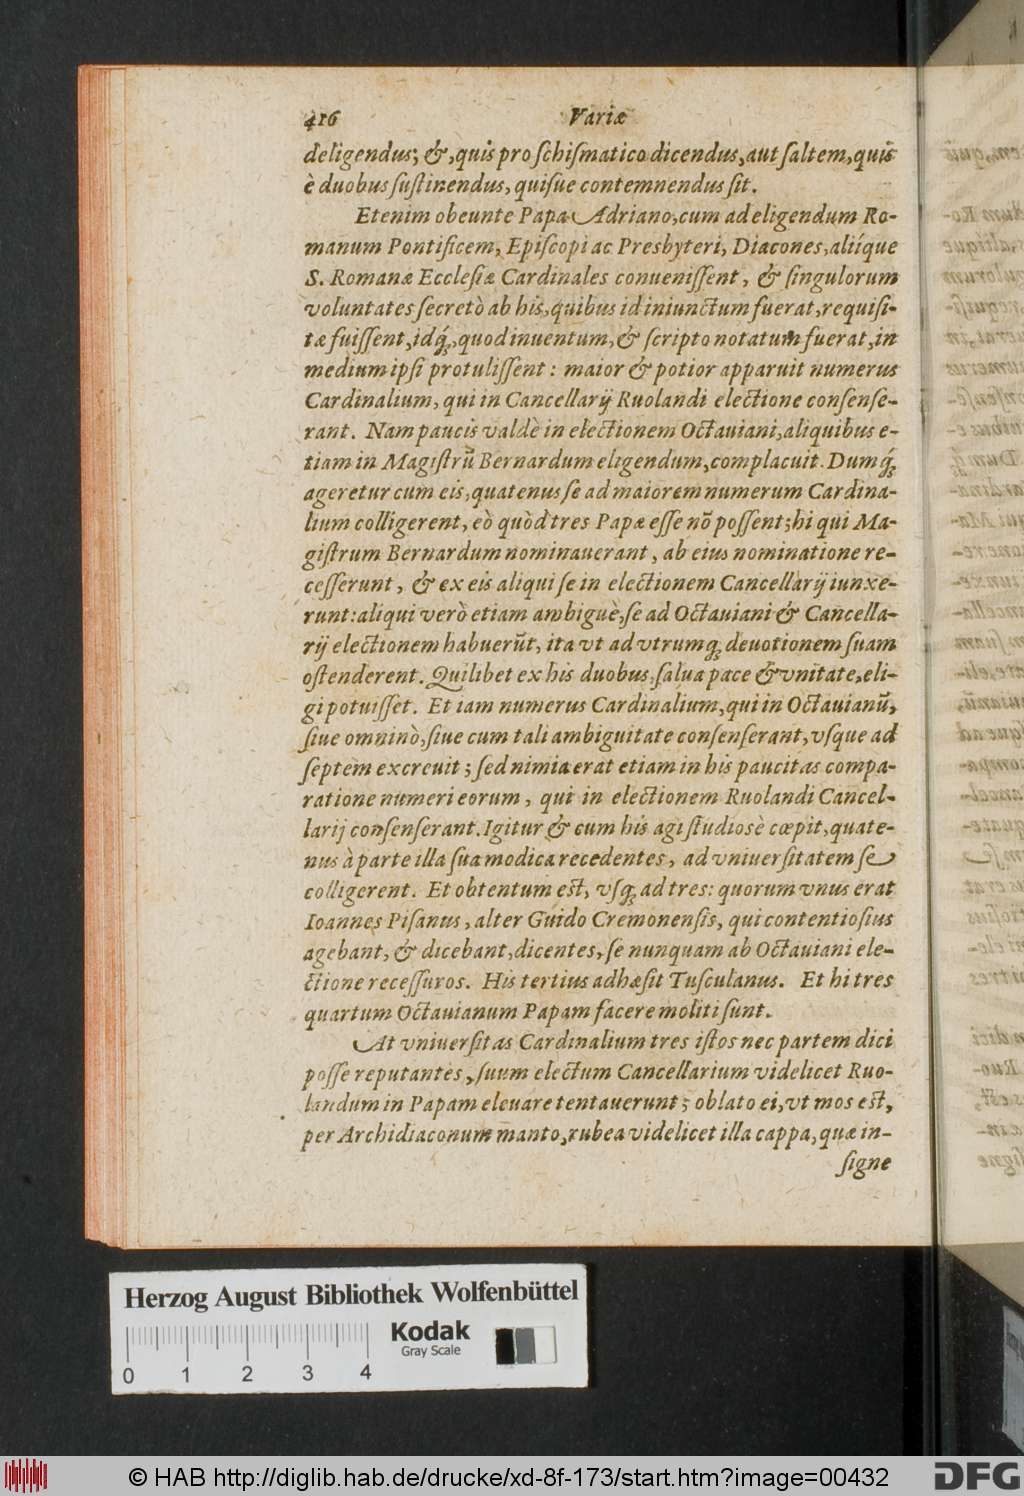 416 Variæ
deligendus; &, quis pro ſchiſmatico dicendus, aut ſaltem, quis
è duobus ſuſtinendus, quiſue contemnendus ſit.
Etenim obeunte Papa Adriano, cum ad eligendum Ro-
manum Pontificem, Epiſcopi ac Presbyteri, Diacones, aliíque
S. Romanæ Eccleſiæ Cardinales conueniſſent, & ſingulorum
voluntates ſecretò ab his, quibus id iniunctum fuerat, requiſi-
tæ fuiſſent, idq́;, quod inuentum, & ſcripto notatum fuerat, in
medium ipſi protuliſſent: maior & potior apparuit numerus
Cardinalium, qui in Cancellarij Ruolandi electione conſenſe-
rant. Nam paucis valdè in electionem Octauiani, aliquibus e-
tiam in Magiſtrũ Bernardum eligendum, complacuit. Dumq́;
ageretur cum eis, quatenus ſe ad maiorem numerum Cardina-
lium colligerent, eò quòd tres Papæ eſſe nõ poſſent; hi qui Ma-
giſtrum Bernardum nominauerant, ab eius nominatione re-
ceſſerunt, & ex eis aliqui ſe in electionem Cancellarij iunxe-
runt: aliqui verò etiam ambiguè, ſe ad Octauiani & Cancella-
rij electionem habuerũt, ita vt ad vtrumq; deuotionem ſuam
oſtenderent. Quilibet ex his duobus, ſalua pace & vnitate, eli-
gi potuiſſet. Et iam numerus Cardinalium, qui in Octauianũ,
ſiue omninò, ſiue cum tali ambiguitate conſenſerant, vſque ad
ſeptem excreuit; ſed nimia erat etiam in his paucitas compa-
ratione numeri eorum, qui in electionem Ruolandi Cancel-
larij conſenſerant. Igitur & cum his agi ſtudiosè cœpit, quate-
nus à parte illa ſua modica recedentes, ad vniuerſitatem ſe
colligerent. Et obtentum eſt, vſq; ad tres: quorum vnus erat
Ioannes Piſanus, alter Guido Cremonenſis, qui contentioſius
agebant, & dicebant, dicentes, ſe nunquam ab Octauiani ele-
ctione receſſuros. His tertius adhæſit Tuſculanus. Et hi tres
quartum Octauianum Papam facere moliti ſunt.
At vniuerſitas Cardinalium tres iſtos nec partem dici
poſſe reputantes, ſuum electum Cancellarium videlicet Ruo-
landum in Papam eleuare tentauerunt; oblato ei, vt mos eſt,
per Archidiaconum manto, rubea videlicet illa cappa, quæ in-
ſigne
Herzog August Bibliothek Wolfenbüttel
Kodak
Gray Scale
0 1 2 3 4
© HAB http://diglib.hab.de/drucke/xd-8f-173/start.htm?image=00432
DFG